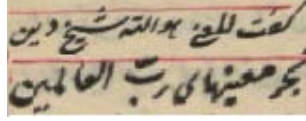 کفت للغ هو الله شیخ دین
بحر معنیهای رب العالمین